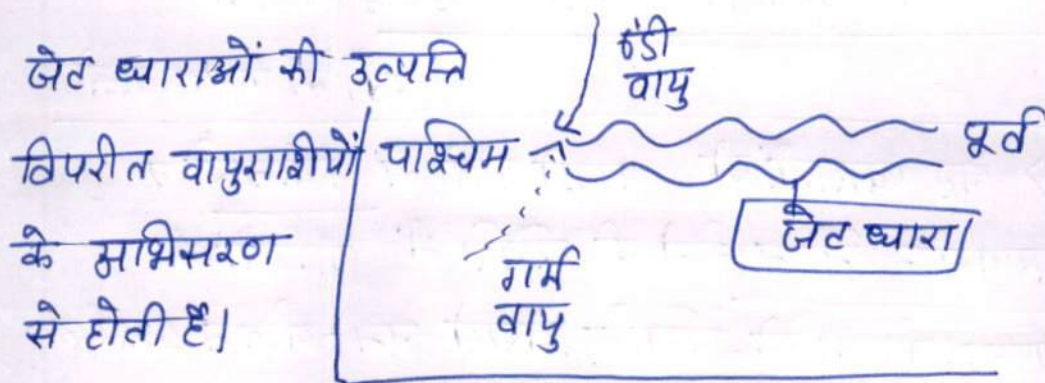 जेट धाराओं की उत्पत्ति
विपरीत वायुराशीयों
के अभिसरण
से होती है।
ठंडी
वायु
पश्चिम
पूर्व
जेट धारा
गर्म
वायु